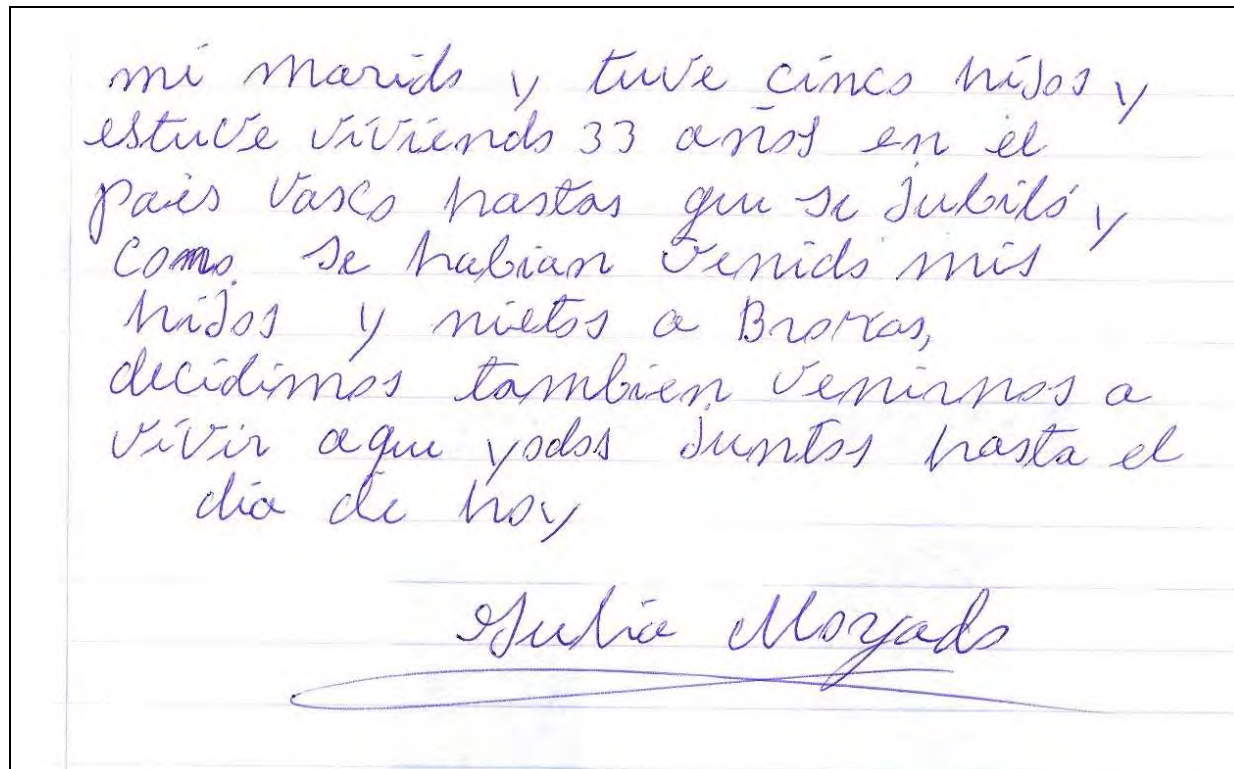 mi marido y tuve cinco hijos y
estuve viviendo 33 años en el
pais Vasco hastas que se Jubiló y
como se habian venido mis
hijos y nietos a Brozas,
decidimos tambien venirnos a
vivir aqui yodos Juntos hasta el
dia de hoy
Julia Moyado